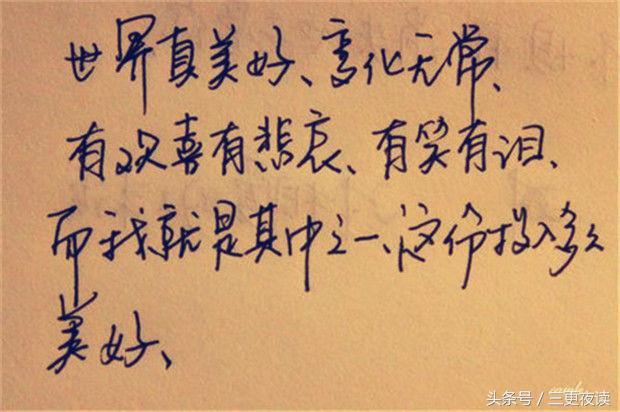 世界真美好、变化无常、
有欢喜有悲哀、有笑有泪、
而我就是其中之一、这份投入多么
美好、
头条号 / 三更夜读